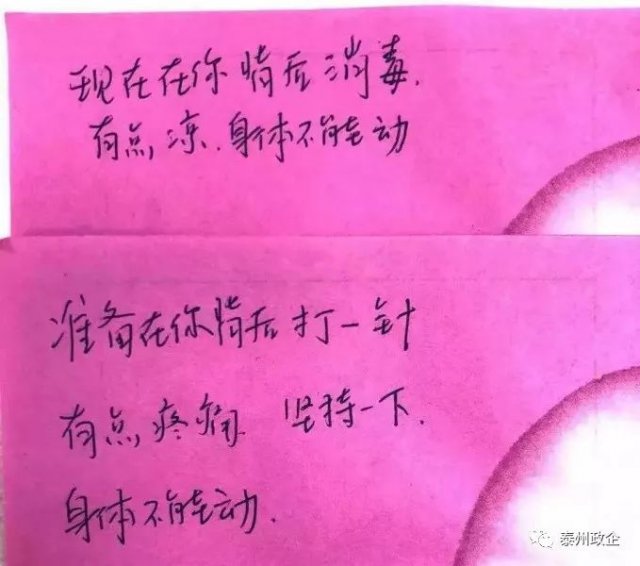 现在在你背后消毒.
有点凉.身体不能动
准备在你背后打一针
有点疼痛.坚持一下.
身体不能动.
泰州政企